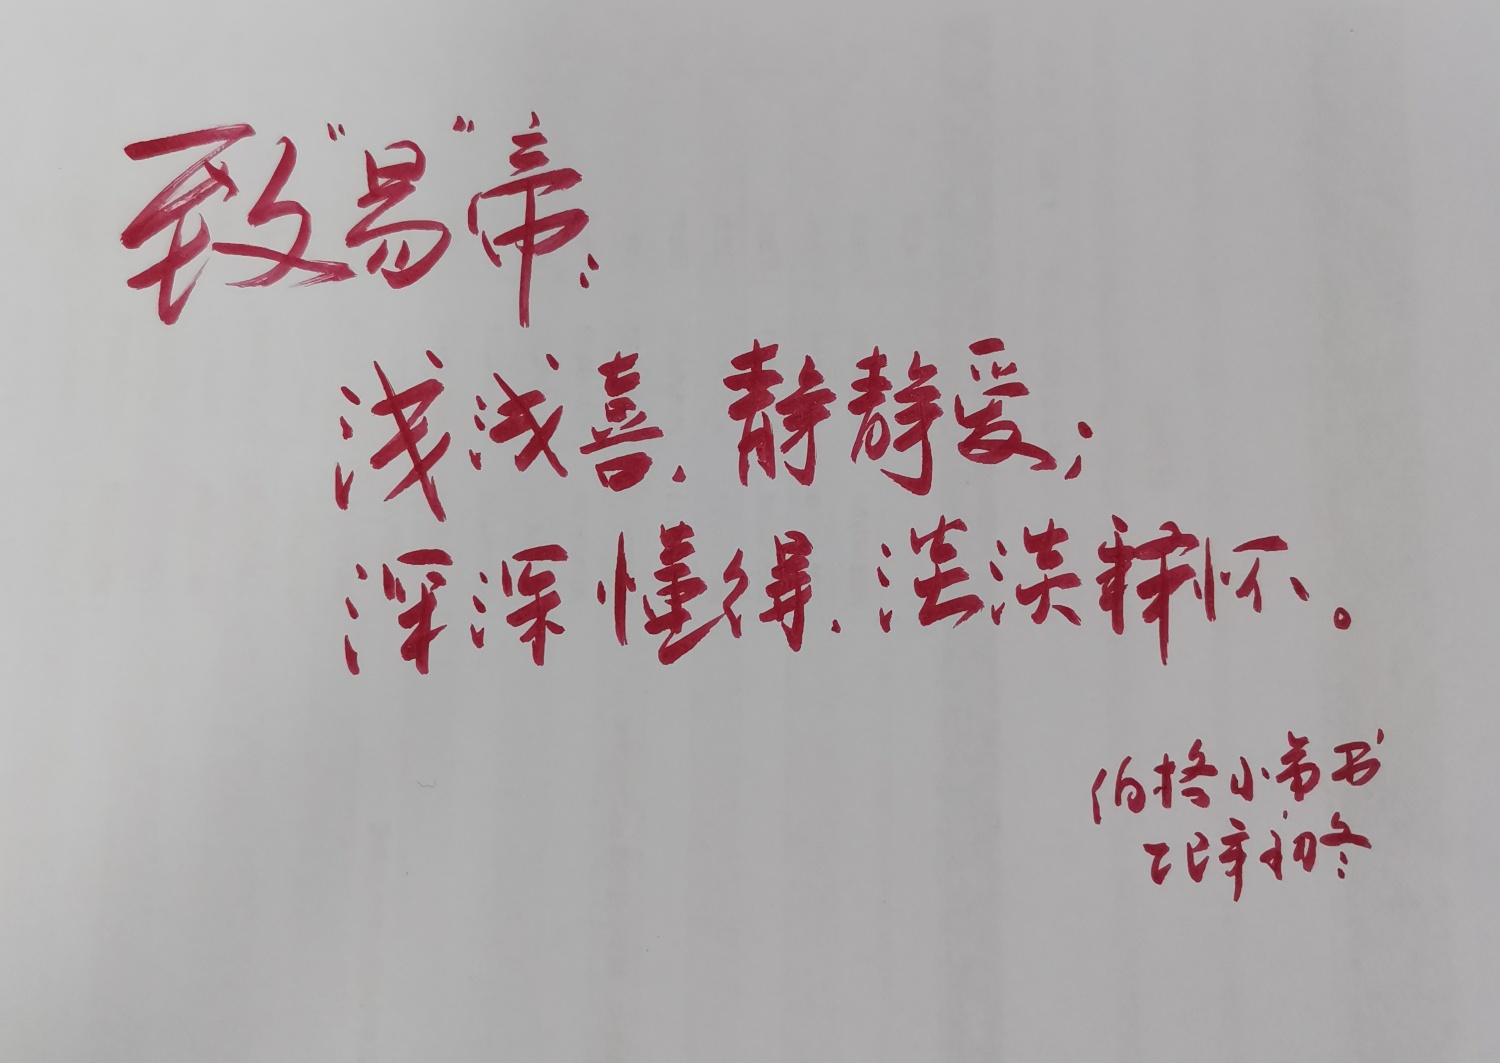 致"易"帝:
浅浅喜、静静爱;
深深懂得、淡淡释怀。
伯格小帝书
乙巳年初冬